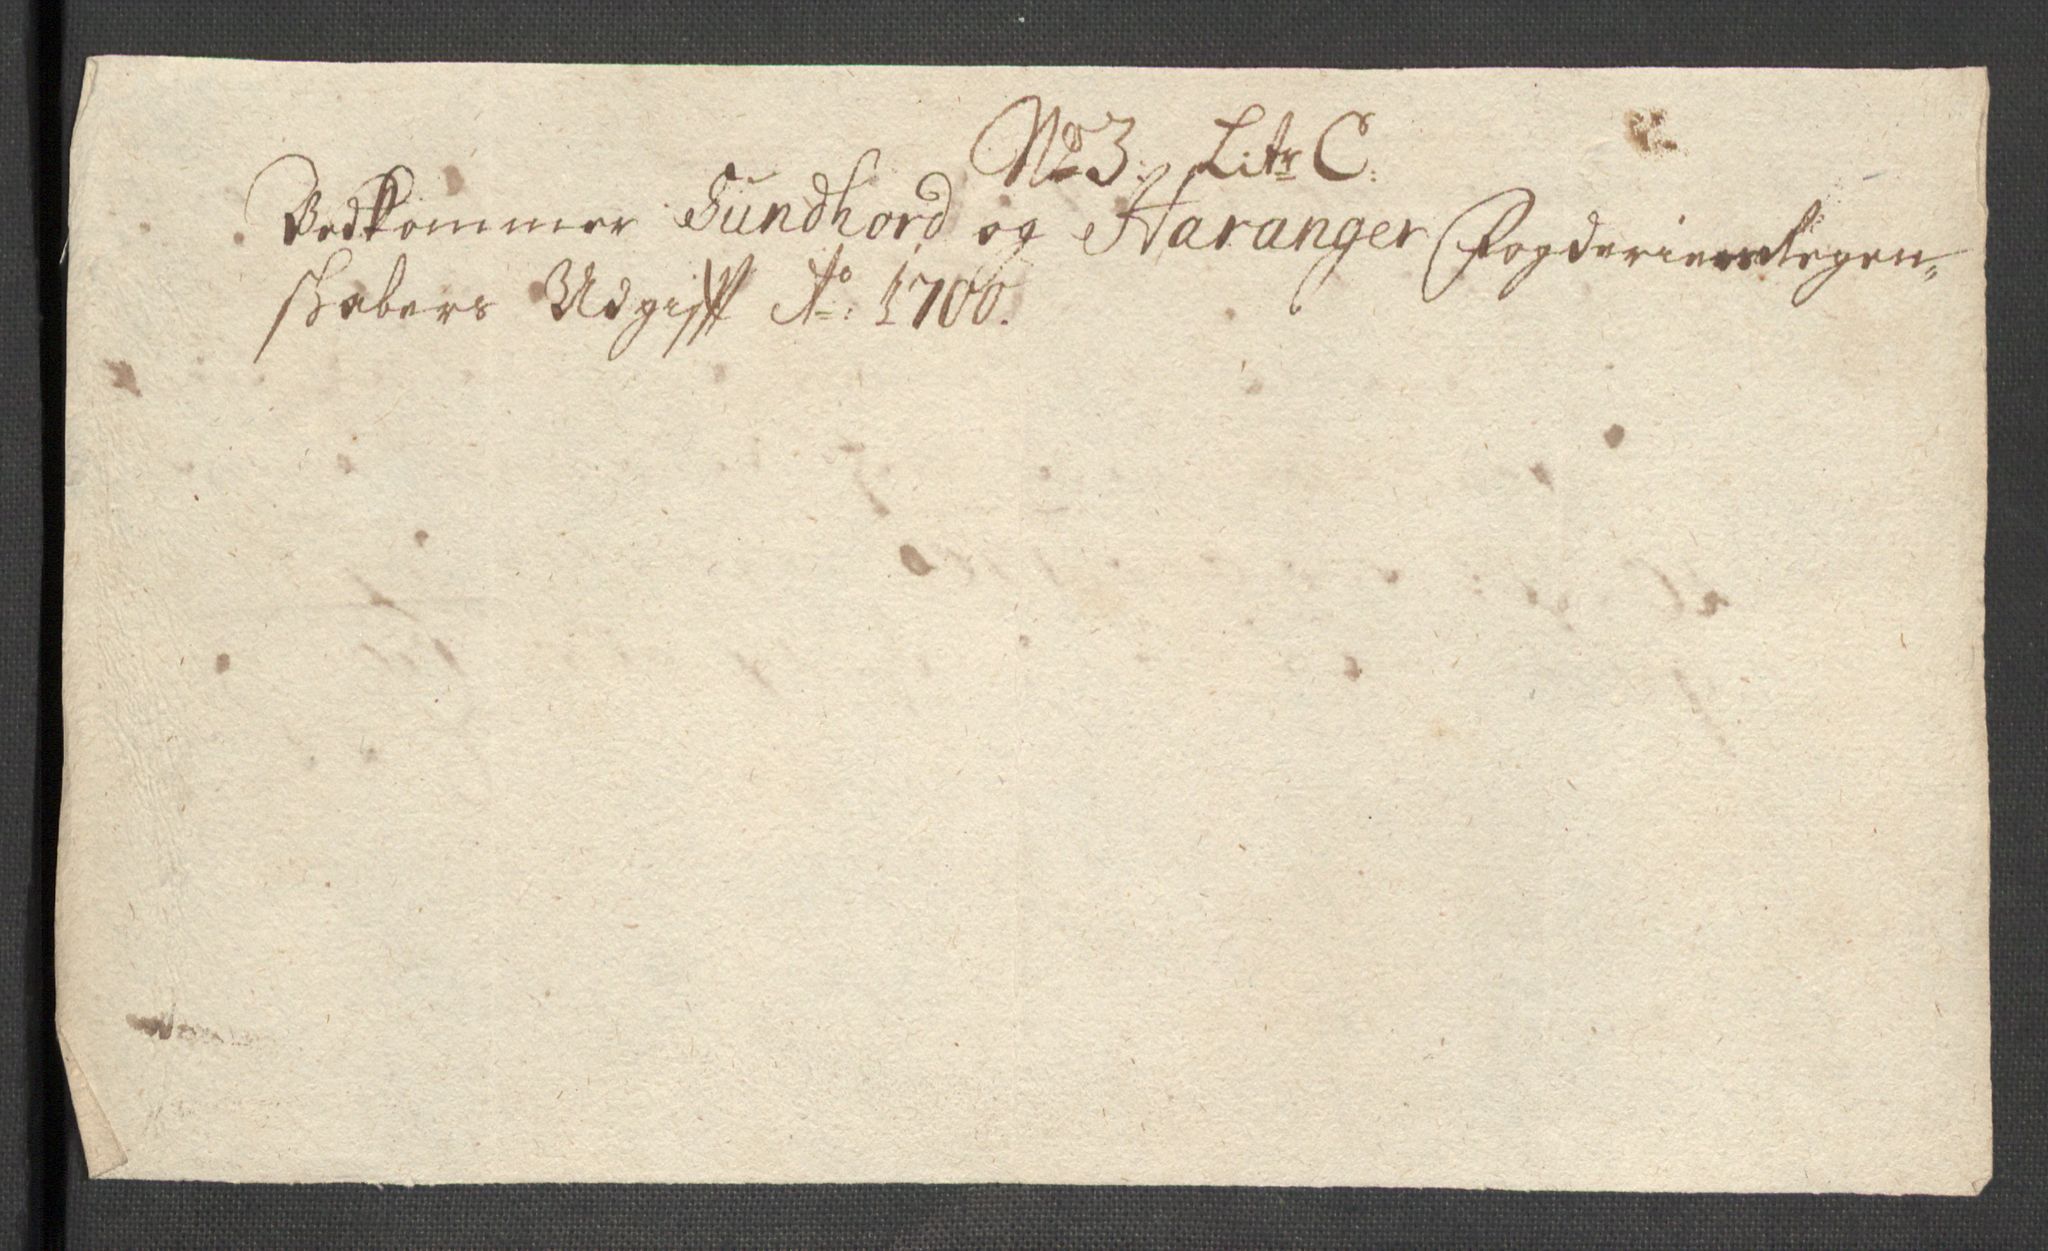 No 3. Litr C.
Vedkommer Sundhord og Haranger Fogderiers Regen-
skabers Udgifft Ao: 1700.